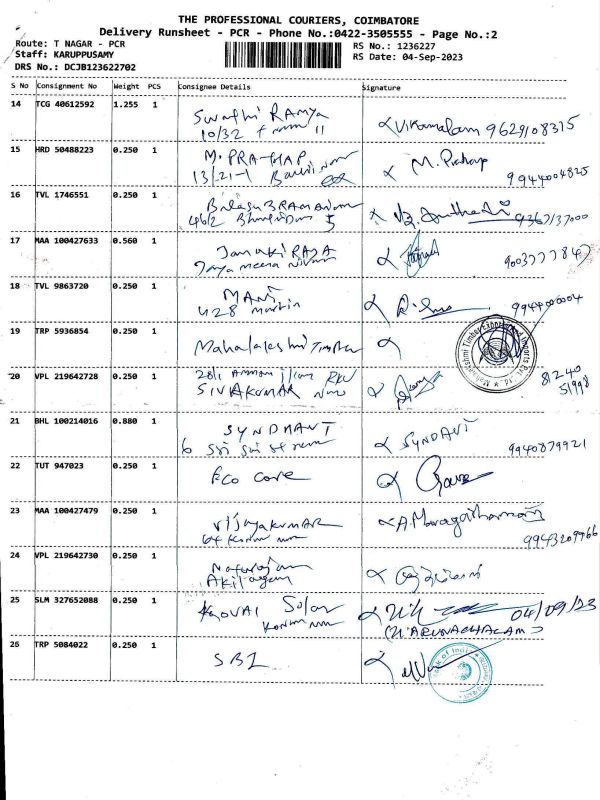 THE PROFESSIONAL COURIERS, COIMBATORE
Delivery Runsheet - PCR - Phone No.:0422-3505555 - Page No.:2
Route: T NAGAR - PCR
RS No.: 1236227
Staff: KARUPPUSAMY
RS Date: 04-Sep-2023
DRS No.: DCJB123622702
S No Consignment No Weight PCS Consignee Details Signature
14 TCG 40612592 1.255 1
Swathi RAMYA
10/32
Vikamalam 9629108315
15 HRD 50488223 0.250 1
M. PRATHAP
13/21-1
M. Prathap
9944004825
16 TVL 1746551 0.250 1
46/2
5
9367137000
17 MAA 100427633 0.560 1
Janaki RAJA
Jaya meena
9003777847
18 TVL 9863720 0.250 1
MANI
428 Martin
9944000004
19 TRP 5936854 0.250 1
Mahalakshmi Timber
20 VPL 219642728 0.250 1
SIVAKUMAR
81240
51998
21 BHL 100214016 0.880 1
SYNDHAVI
6 Sri Sri
SYNDAVI
9940879921
22 TUT 947023 0.250 1
Eco care
23 MAA 100427479 0.250 1
Vijayakumar
64
A. Maragathamani
9943209966
24 VPL 219642730 0.250 1
Natarajan
Akilagam
25 SLM 327652088 0.250 1
KOVAI Solar
04/09/23
(N ARUNACHALAM)
26 TRP 5084022 0.250 1
SBI